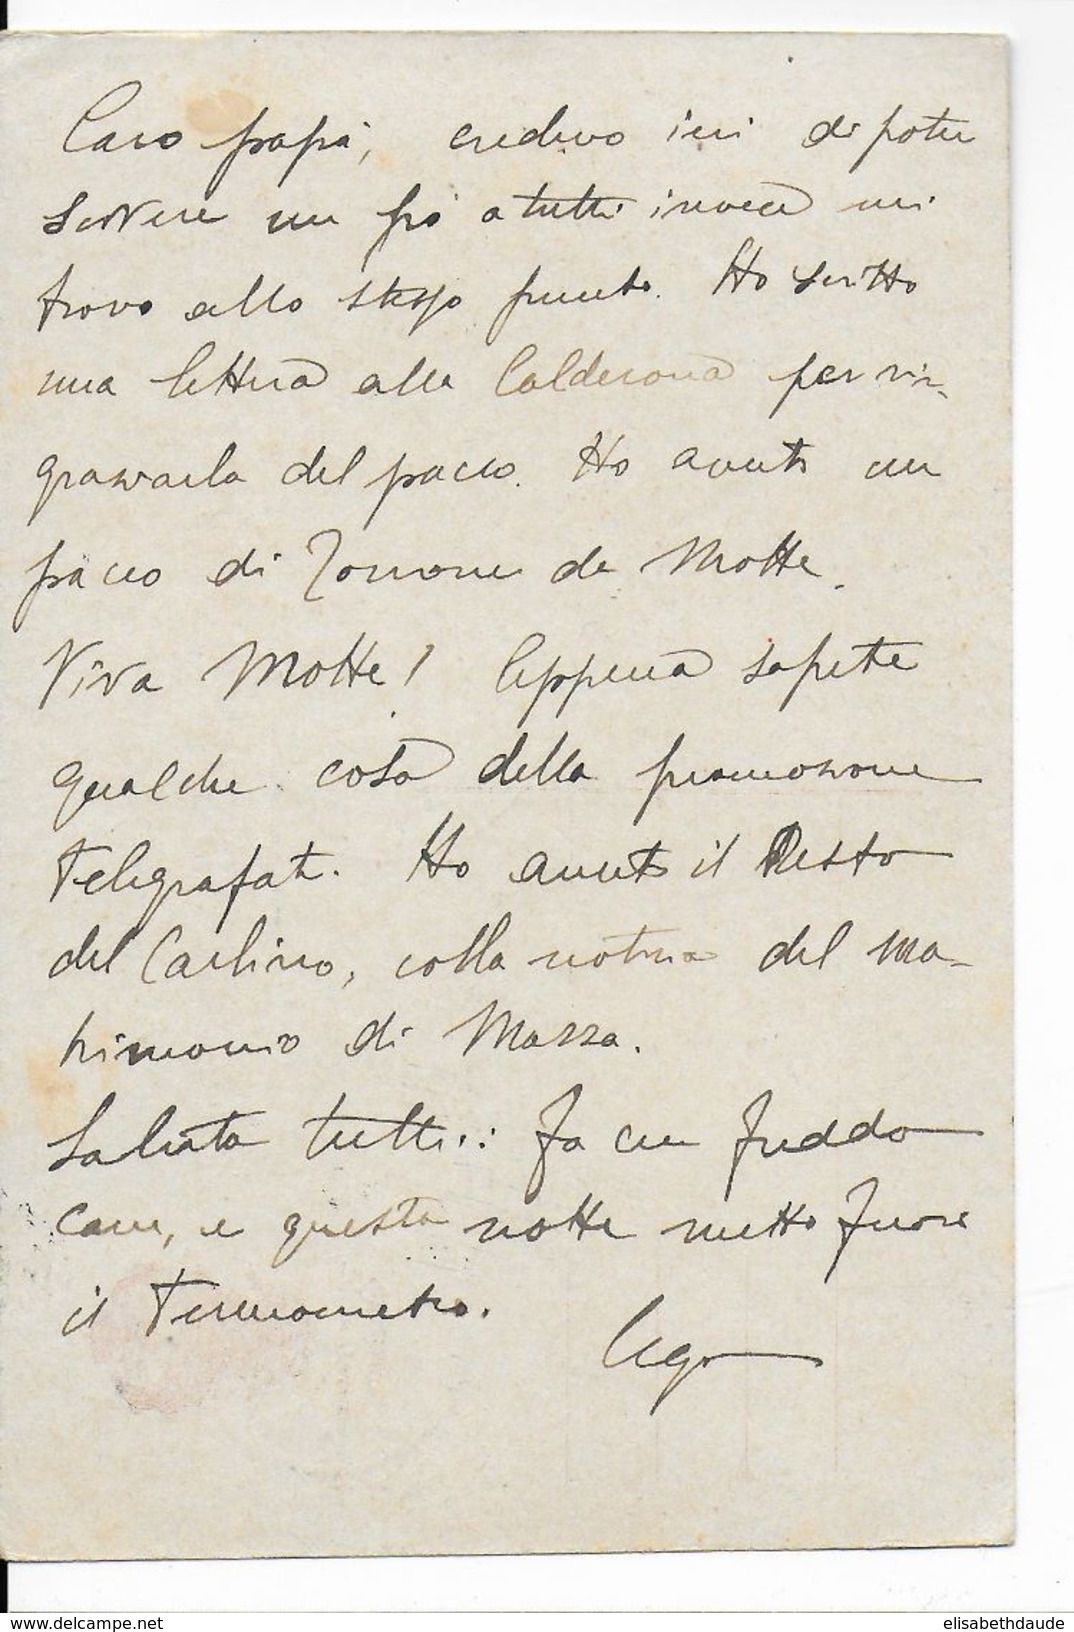 Caro papà, credevo ieri di poter
scrivere un pò a tutti invece mi
trovo allo stesso punto. Ho scritto
una lettera alla Calderona per rin-
graziarla del pacco. Ho avuto un
pacco di Torrone da Motta.
Viva Motta! Appena sapete
qualche cosa della promozione
Telegrafate. Ho avuto il Resto
del Carlino, colla notizia del ma-
trimonio di Mazza.
Saluta tutti.: fa un freddo
cane, e questa notte metto fuori
il Termometro.
Ugo
elisabethdaude